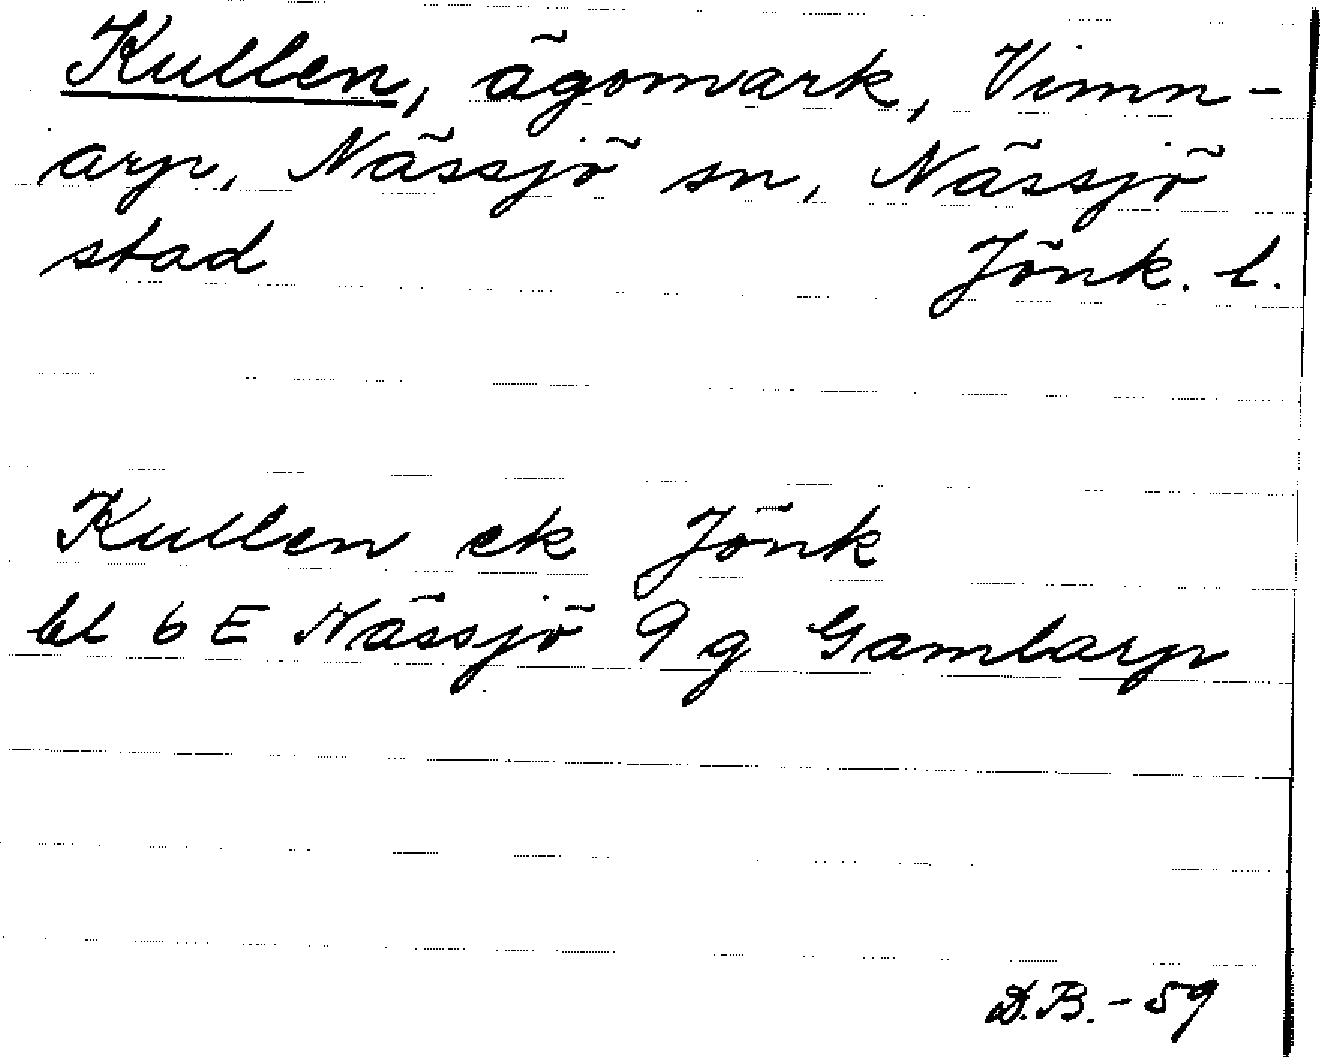 Kullen, ägomark, Vimn-
arp, Nässjö sn, Nässjö
stad Jönk. l.
Kullen ek Jönk
bl 6 E Nässjö 9 g Gamlarp
D.B. - 59